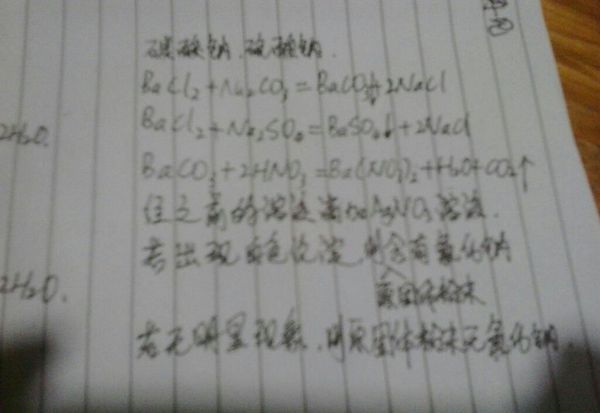 碳酸钠、硫酸钠.
BaCl₂+Na₂CO₃=BaCO₃↓+2NaCl
BaCl₂+Na₂SO₄=BaSO₄↓+2NaCl
2H₂O.
BaCO₃+2HNO₃=Ba(NO₃)₂+H₂O+CO₂↑
往之前的溶液滴加AgNO₃溶液.
若出现白色沉淀,则含有氯化钠
2H₂O.
原固体粉末
若无明显现象,则原固体粉末无氯化钠.